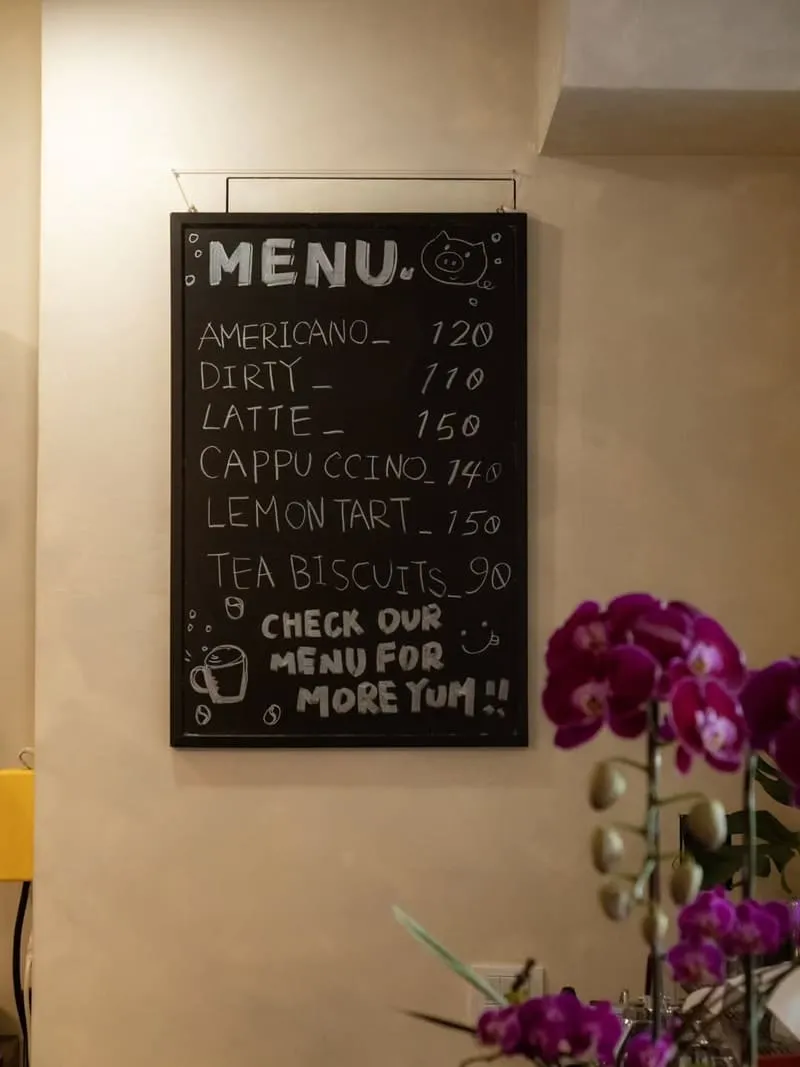 MENU.
AMERICANO_ 120
DIRTY_ 110
LATTE_ 150
CAPPUCCINO_ 140
LEMON TART_ 150
TEA BISCUITS_ 90
CHECK OUR
MENU FOR
MORE YUM!!